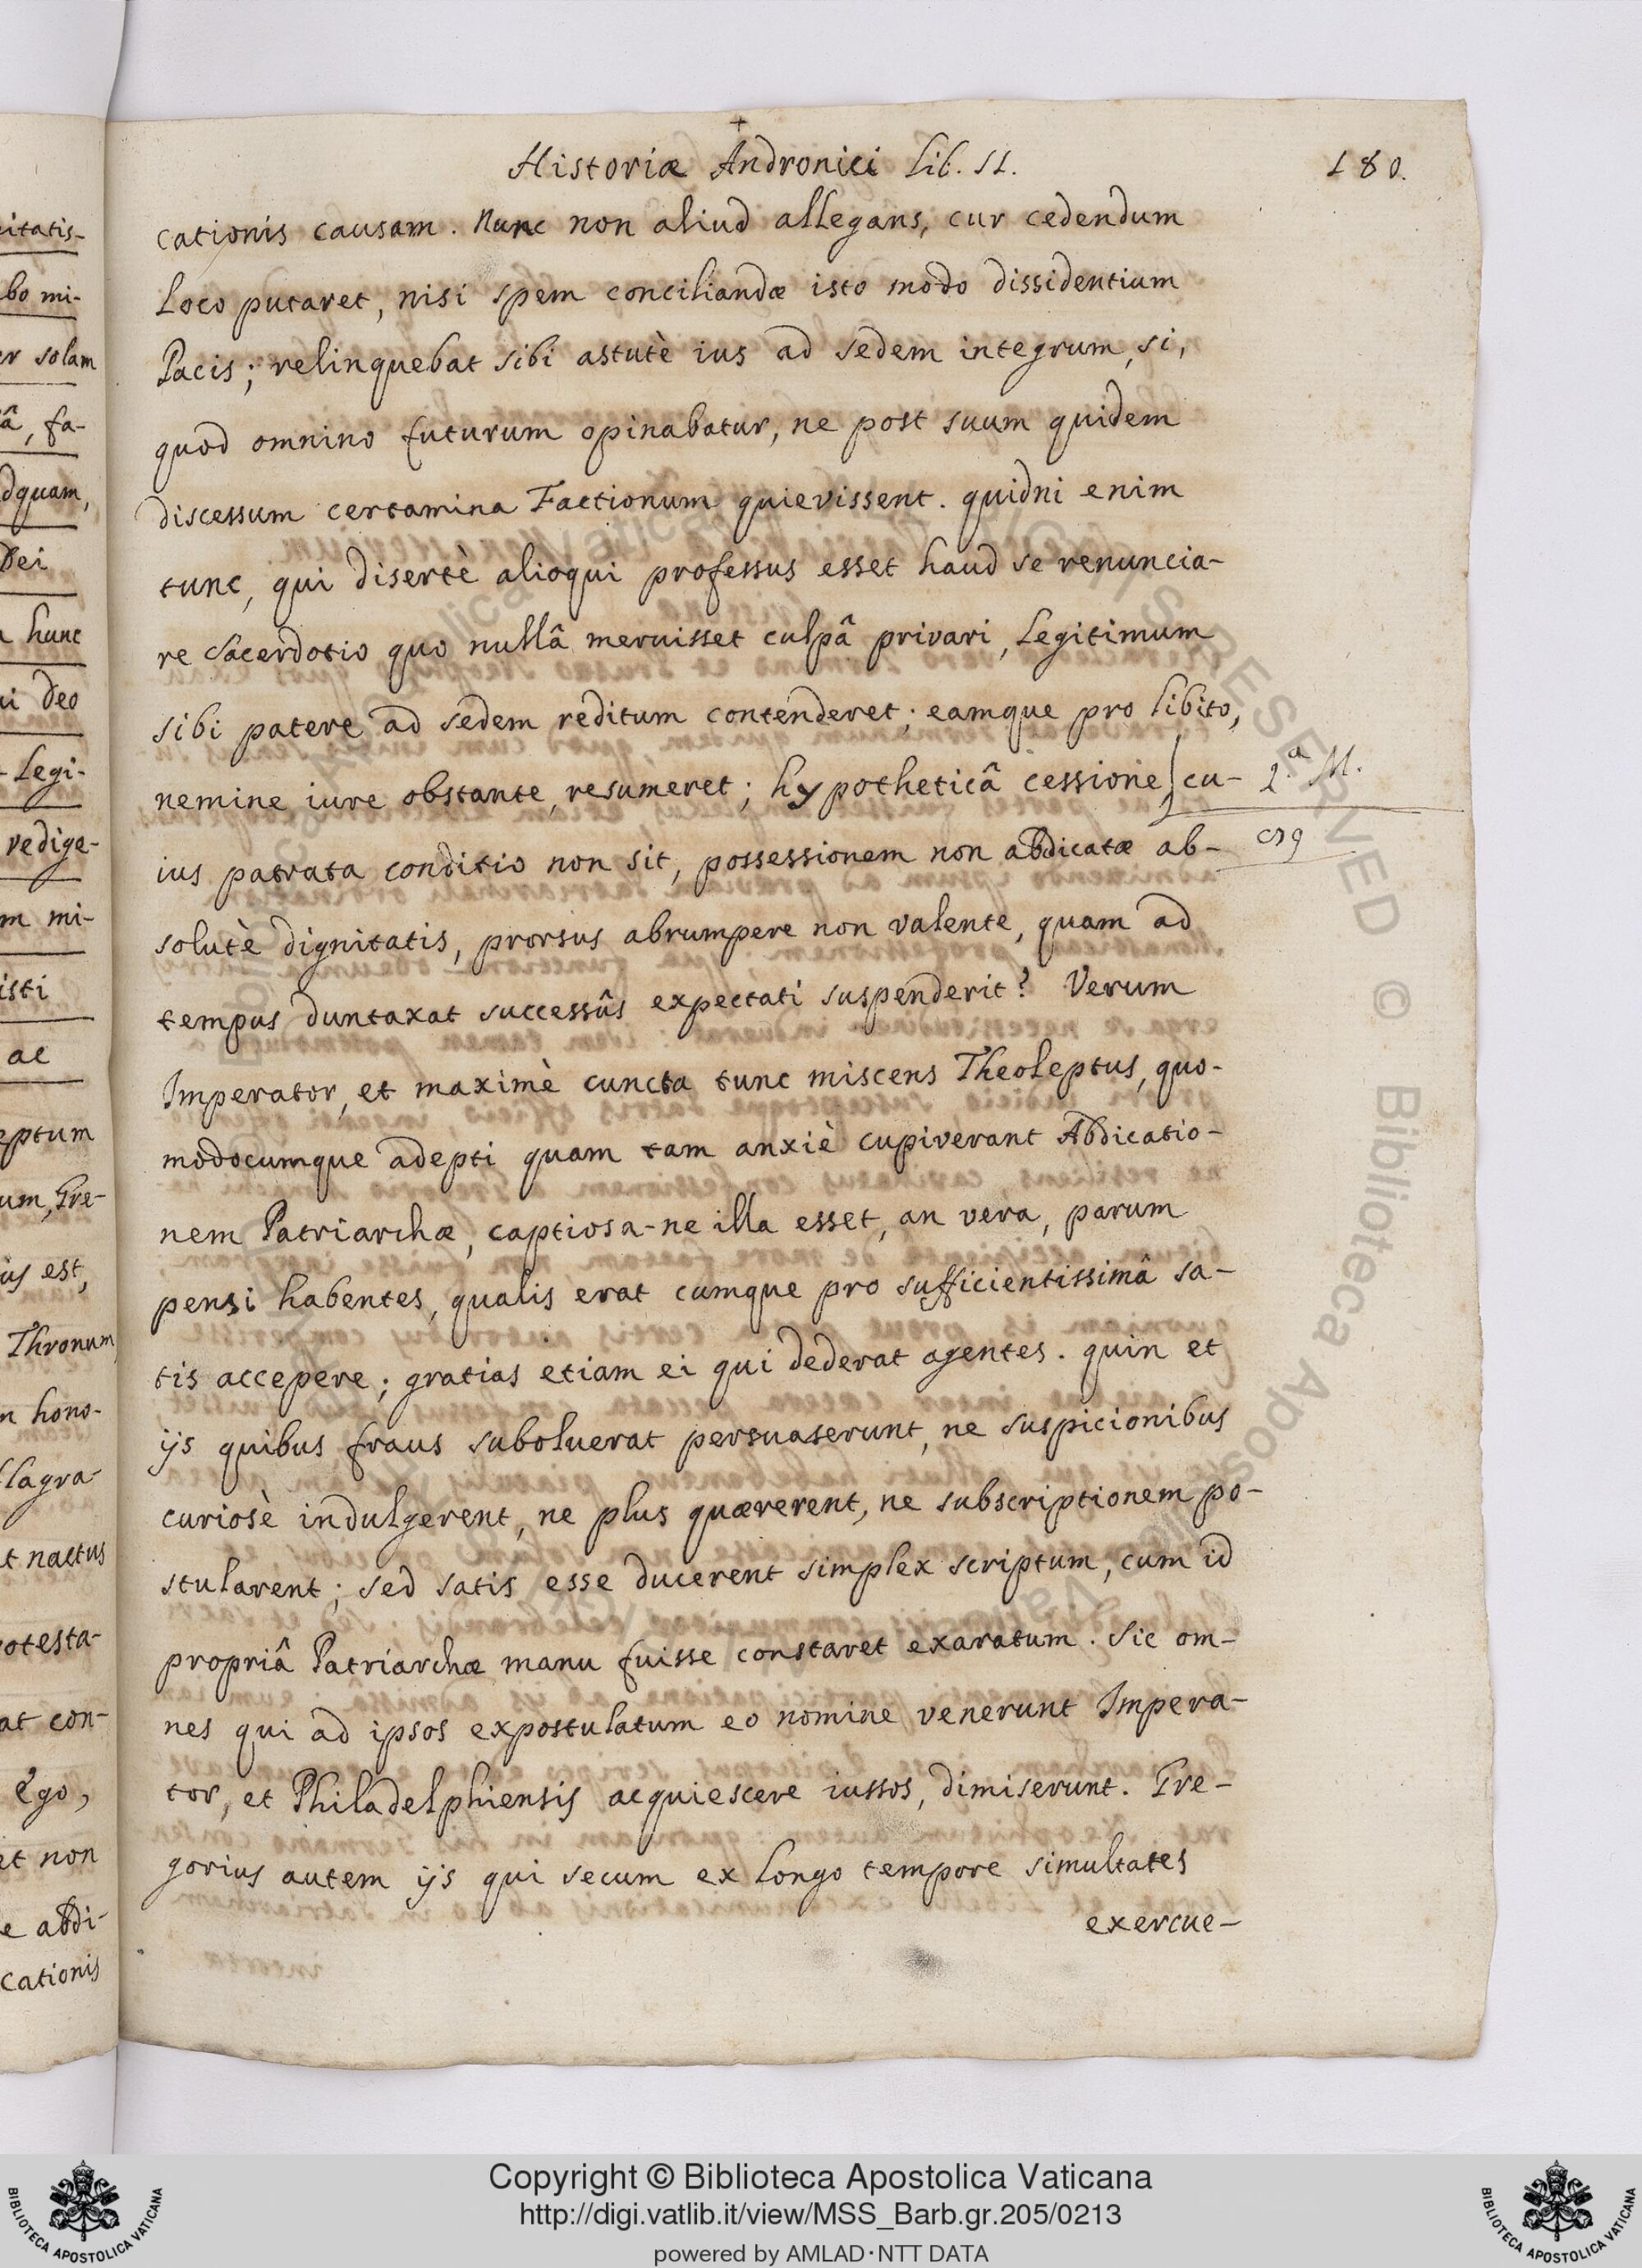 +
Historiæ Andronici Lib. II. 180.
cationis causam. Nunc non aliud allegans, cur cedendum
Loco putaret, nisi spem conciliandæ isto modo dissidentium
Pacis; relinquebat sibi astutè ius ad sedem integrum, si,
quod omnino futurum opinabatur, ne post suum quidem
discessum certamina Factionum quievissent. quidni enim
tunc, qui disertè alioqui professus esset haud se renuncia-
re Sacerdotio quo nullâ meruisset culpâ privari, Legitimum
sibi patere ad sedem reditum contenderet; eamque pro libito,
nemine iure obstante, resumeret; hypotheticâ cessione cu- 2.a M.
ius patrata conditio non sit, possessionem non abdicatæ ab-
solutè dignitatis, prorsus abrumpere non valente, quam ad
tempus duntaxat successûs expectati suspenderit? Verum
Imperator, et maximè cuncta tunc miscens Theoleptus, quo-
modocumque adepti quam tam anxiè cupiverant Abdicatio-
nem Patriarchæ, captiosa-ne illa esset, an vera, parum
pensi habentes, qualis erat cumque pro sufficientissimâ sa-
tis accepere; gratias etiam ei qui dederat agentes. quin et
ijs quibus fraus suboluerat persuaserunt, ne suspicionibus
curiosè indulgerent, ne plus quærerent, ne subscriptionem po-
stularent; sed satis esse ducerent simplex scriptum, cum id
propriâ Patriarchæ manu fuisse constaret exaratum. Sic om-
nes qui ad ipsos expostulatum eo nomine venerunt Impera-
tor, et Philadelphiensis acquiescere iussos, dimiserunt. Gre-
gorius autem ijs qui secum ex longo tempore simultates
exercue-
itatis-
bo mi-
er solam
â, fa-
dquam,
Dei
hunc
ui Deo
Legi-
redige-
m mi-
isti
ac
eptum
um, Gre-
ius est,
Thronum,
m hono-
flagra-
t nactus
otesta-
at con-
Ego,
et non
e abdi-
cationis
Copyright © Biblioteca Apostolica Vaticana
http://digi.vatlib.it/view/MSS_Barb.gr.205/0213
powered by AMLAD·NTT DATA
BIBLIOTECA APOSTOLICA VATICANA
BIBLIOTECA APOSTOLICA VATICANA